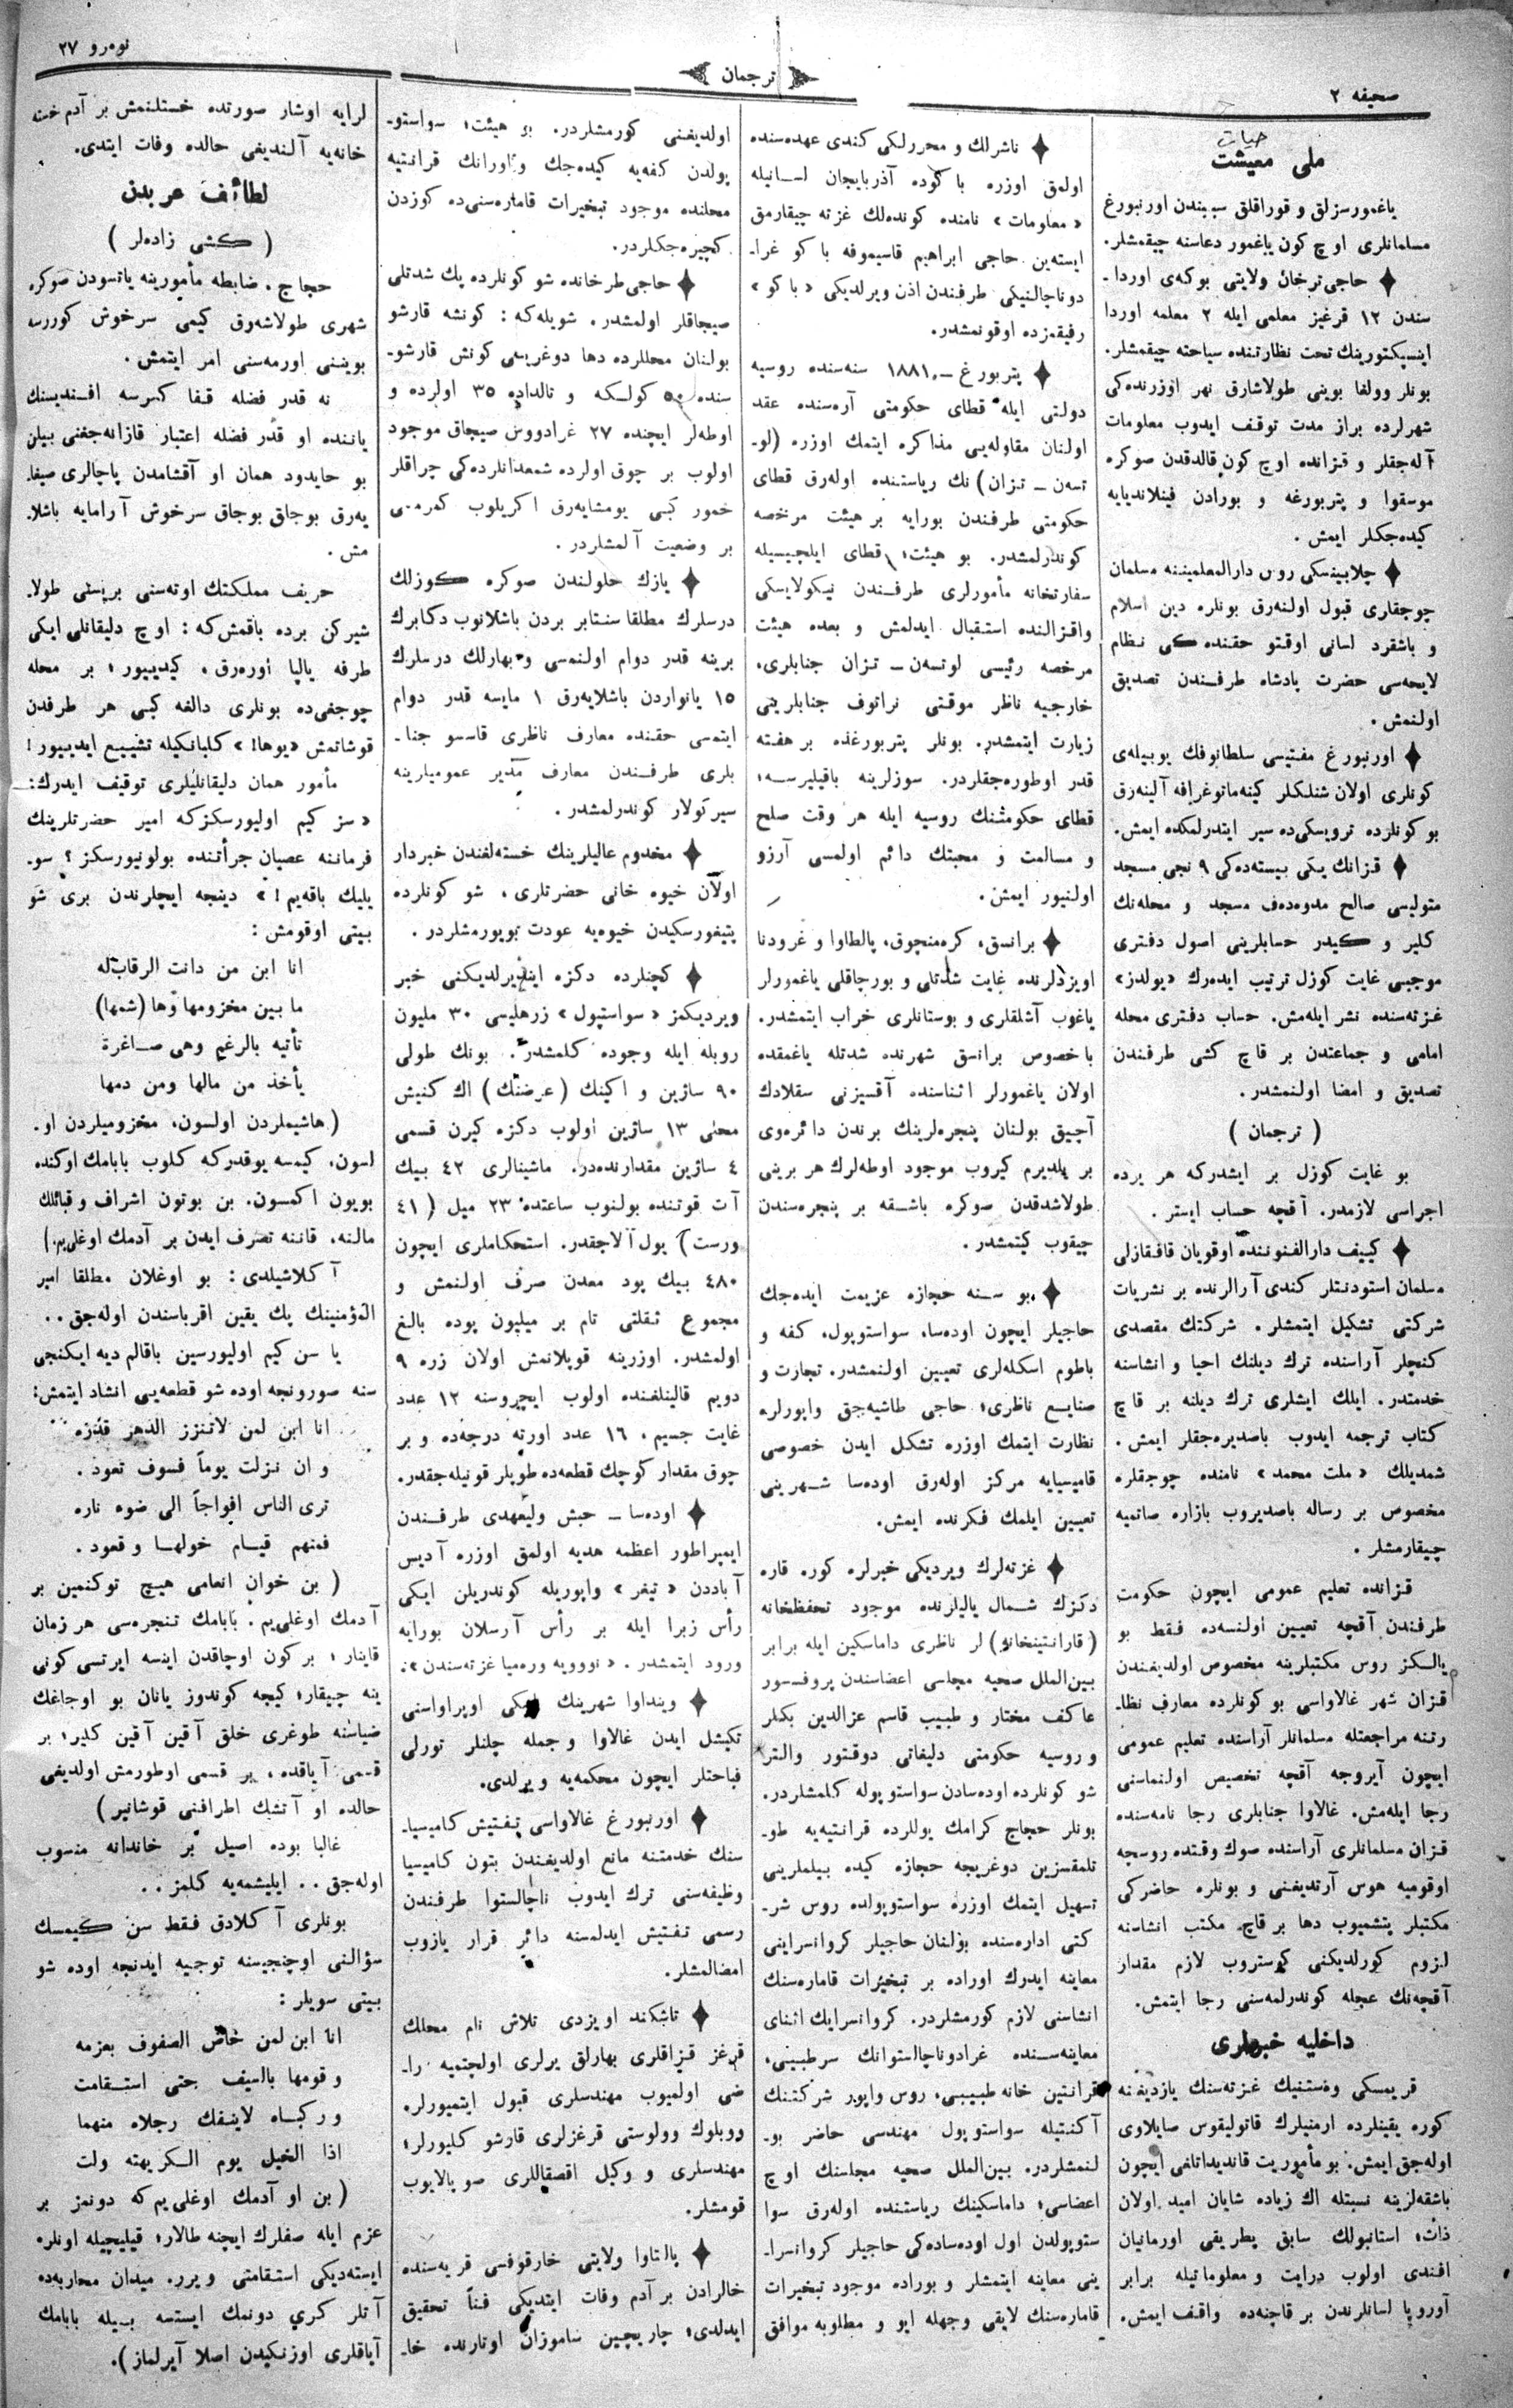 صحیفه ٢
ترجمان
نومرو ٢٧
حیات
ملی معیشت
یاغمورسزلق و قوراقلق سببندن اورنبورغ
مسلمانلری اوچ كون یاغمور دعاسنه چیقمشلر.
حاجی‌ترخان ولایتی بوكه‌ی اوردا ـ
سندن ١٢ قرغیز معلمی ایله ٢ معلمه اوردا
اینسپكتورینك تحت نظارتنده سیاحته چیقمشلر.
بونلر وولغا بوینی طولاشارق نهر اوزرنده‌كی
شهرلرده براز مدت توقف ایدوب معلومات
آله‌جقلر و قزانده اوچ كون قالدقدن صوكره
موسقوا و پتربورغه و بورادن فینلاندیایه
كیده‌جكلر ایمش.
چلابینسكی روس دارالمعلمیننه مسلمان
چوجقلری قبول اولنه‌رق بونلره دین اسلام
و باشقرد لسانی اوقتو حقنده كی نظام
لایحه‌سی حضرت پادشاه طرفندن تصدیق
اولنمش.
اورنبورغ مفتیسی سلطانوفك یوبیله‌ی
كونلری اولان شنلكلر كینه‌ماتوغرافه آلینه‌رق
بو كونلرده ترویسكی‌ده سیر ایتدرلمكده ایمش.
قزانك یكی بیسته‌ده‌كی ٩ نجی مسجد
متولیسی صالح مدوه‌ده‌ف مسجد و محله‌نك
كلیر و كیدر حسابلرینی اصول دفتری
موجبی غایت كوزل ترتیب ایده‌رك «یولدز»
غزته‌سنده نشر ایله‌مش. حساب دفتری محله
امامی و جماعتدن بر قاچ كشی طرفندن
تصدیق و امضا اولنمشدر.
( ترجمان )
بو غایت كوزل بر ایشدركه هر یرده
اجراسی لازمدر. آقچه حساب ایستر.
كییف دارالفنوننده اوقویان قافقازلی
مسلمان استودنتلر كندی آرالرنده بر نشریات
شركتی تشكیل ایتمشلر. شركتك مقصدی
كنچلر آراسنده ترك دیلنك احیا و انشاسنه
خدمتدر. ایلك ایشلری ترك دیلنه بر قاچ
كتاب ترجمه ایدوب باصدیره‌جقلر ایمش.
شمدیلك «ملت محمد» نامنده چوجقلره
مخصوص بر رساله باصدیروب بازاره صاتمیه
چیقارمشلر.
قزانده تعلیم عمومی ایچون حكومت
طرفندن آقچه تعیین اولنسه‌ده فقط بو
یالكز روس مكتبلرینه مخصوص اولدیغندن
قزان شهر غالاواسی بو كونلرده معارف نظا ـ
رتنه مراجعتله مسلمانلر آراسنده تعلیم عمومی
ایچون آیروجه آقچه تخصیص اولنماسنی
رجا ایله‌مش. غالاوا جنابلری رجا نامه‌سنده
قزان مسلمانلری آراسنده صوك وقتده روسچه
اوقومیه هوس آرتدیغنی و بونلره حاضركی
مكتبلر یتشمیوب دها بر قاچ مكتب انشاسنه
لزوم كورلدیكنی كوستروب لازم مقدار
آقچه‌نك عجله كوندرلمه‌سنی رجا ایتمش.
داخلیه خبرلری
قریمسكی وه‌ستنیك غزته‌سنك یازدیغنه
كوره یقینلرده ارمنیلرك قاتولیقوس صایلاوی
اوله‌جق ایمش. بو مأموریت قاندیداتلغی ایچون
باشقه‌لرینه نسبتله اك زیاده شایان امید اولان
ذات، استانبولك سابق پطریقی اورمانیان
افندی اولوب درایت و معلوماتیله برابر
آوروپا لسانلرندن بر قاچنه‌ده واقف ایمش.
ناشرلك و محررلكی كندی عهده‌سنده
اولمق اوزره باكوده آذربایجان لسانیله
«معلومات» نامنده كونده‌لك غزته چیقارمق
ایسته‌ین حاجی ابراهیم قاسیموفه باكو غرا ـ
دوناچالنیكی طرفندن اذن ویرلدیكی «باكو»
رفیقمزده اوقونمشدر.
پتربورغ ـ ١٨٨١ سنه‌سنده روسیه
دولتی ایله قطای حكومتی آره‌سنده عقد
اولنان مقاوله‌یی مذاكره ایتمك اوزره (لو ـ
تسه‌ن ـ تزان) نك ریاستنده اوله‌رق قطای
حكومتی طرفندن بورایه بر هیئت مرخصه
كوندرلمشدر. بو هیئت، قطای ایلچیسیله
سفارتخانه مأمورلری طرفندن نیكولایسكی
واقزالنده استقبال ایدلمش و بعده هیئت
مرخصه رئیسی لوتسه‌ن ـ تزان جنابلری،
خارجیه ناظر موقتی نراتوف جنابلرینی
زیارت ایتمشدر. بونلر پتربورغده بر هفته
قدر اوطوره‌جقلردر. سوزلرینه باقیلیرسه،
قطای حكومتنك روسیه ایله هر وقت صلح
و مسالمت و محبتك دائم اولمسی آرزو
اولنیور ایمش.
برانسق، كره‌منچوق، پالطاوا و غرودنا
اویزدلرنده غایت شدتلی و بورجاقلی یاغمورلر
یاغوب آشلقلری و بوستانلری خراب ایتمشدر.
باخصوص برانسق شهرنده شدتله یاغمقده
اولان یاغمورلر اثناسنده آقسیزنی سقلادك
آچیق بولنان پنجره‌لرینك برندن دائره‌وی
بر یلدیرم كیروب موجود اوطه‌لرك هر برینی
طولاشدقدن صوكره باشقه بر پنجره‌سندن
چیقوب كیتمشدر.
بو سنه حجازه عزیمت ایده‌جك
حاجیلر ایچون اوده‌سا، سواستوپول، كفه و
باطوم اسكله‌لری تعیین اولنمشدر. تجارت و
صنایع ناظری، حاجی طاشیه‌جق واپورلره
نظارت ایتمك اوزره تشكل ایدن خصوصی
قامیسیایه مركز اوله‌رق اوده‌سا شهرینی
تعیین ایلمك فكرنده ایمش.
غزته‌لرك ویردیكی خبرلره كوره قاره
دكزك شمال یالیلرنده موجود تحفظخانه
(قارانتینخانه) لر ناظری داماسكین ایله برابر
بین‌الملل صحیه مجلسی اعضاسندن پروفسور
عاكف مختار و طبیب قاسم عزالدین بكلر
و روسیه حكومتی دلیغاتی دوقتور والتر
شو كونلرده اوده‌سادن سواستوپوله كلمشلردر.
بونلر حجاج كرامك یوللرده قرانتیه‌یه طو ـ
تلمقسزین دوغریجه حجازه كیده بیلملرینی
تسهیل ایتمك اوزره سواستوپولده روس شر ـ
كتی اداره‌سنده بولنان حاجیلر كروانسراینی
معاینه ایدرك اوراده بر تبخیرات قاماره‌سنك
انشاسنی لازم كورمشلردر. كروانسرایك اثنای
معاینه‌سنده غرادوناچالستوانك سرطبیبی،
قرانتین خانه طبیبی، روس واپور شركتنك
آكنتیله سواستوپول مهندسی حاضر بو ـ
لنمشلردر. بین‌الملل صحیه مجلسنك اوچ
اعضاسی، داماسكینك ریاستنده اوله‌رق سوا
ستوپولدن اول اوده‌ساده‌كی حاجیلر كروانسرا ـ
ینی معاینه ایتمشلر و بوراده موجود تبخیرات
قاماره‌سنك لایقی وجهله ایو و مطلوبه موافق
اولدیغنی كورمشلردر. بو هیئت، سواستو ـ
پولدن كفه‌یه كیده‌جك و اورانك قرانتیه
محلنده موجود تبخیرات قاماره‌سنی‌ده كوزدن
كچیره‌جكلردر.
حاجی‌طرخانده شو كونلرده پك شدتلی
صیجاقلر اولمشدر. شویله‌كه: كونشه قارشو
بولنان محللرده دها دوغریسی كونش قارشو ـ
سنده ٥٠ كولكه و تالداده ٣٥ اولرده و
اوطه‌لر ایچنده ٢٧ غرادووس صیجاق موجود
اولوب بر چوق اولرده شمعدانلرده‌كی چراقلر
خمور كبی یومشایه‌رق اكریلوب كمره‌سی
بر وضعیت آلمشلردر.
یازك حلولندن صوكره كوزلك
درسلرك مطلقا سنتابر بردن باشلانوب دكابرك
برینه قدر دوام اولنمسی و بهارلك درسلرك
١٥ یانواردن باشلایه‌رق ١ مایسه قدر دوام
ایتمسی حقنده معارف ناظری قاسسو جنا ـ
بلری طرفندن معارف مدیر عمومیلرینه
سیركولار كوندرلمشدر.
مخدوم عالیلرینك خسته‌لغندن خبردار
اولان خیوه خانی حضرتلری، شو كونلرده
پتیغورسكیدن خیوه‌یه عودت بویورمشلردر.
كچنلرده دكزه ایندیرلدیكنی خبر
ویردیكمز «سواستپول» زرهلیسی ٣٠ ملیون
روبله ایله وجوده كلمشدر. بونك طولی
٩٠ ساژین و اكینك (عرضنك) اك كنیش
محلی ١٣ ساژین اولوب دكزه كیرن قسمی
٤ ساژین مقدارنده‌در. ماشینالری ٤٢ بیك
آت قوتنده بولنوب ساعتده ٢٣ میل (٤١
ورست) یول آلاجقدر. استحكاملری ایچون
٤٨٠ بیك پود معدن صرف اولنمش و
مجموع ثقلتی تام بر میلیون پوده بالغ
اولمشدر. اوزرینه قوپلانمش اولان زره ٩
دویم قالینلغنده اولوب ایچروسنه ١٢ عدد
غایت جسیم، ١٦ عدد اورته درجه‌ده و بر
چوق مقدار كوچك قطعه‌ده طوپلر قونیله‌جقدر.
اوده‌سا ـ حبش ولیعهدی طرفندن
ایمپراطور اعظمه هدیه اولمق اوزره آدیس
آبابادن «تیغر» واپوریله كوندریلن ایكی
رأس زبرا ایله بر رأس آرسلان بورایه
ورود ایتمشدر. «نووویه وره‌میا غزته‌سندن».
وینداوا شهرینك ایكی اوپراواسنی
تكیشل ایدن غالاوا و جمله چلنلر تورلی
قباحتلر ایچون محكمه‌یه ویرلدی.
اورنبورغ غالاواسی تفتیش كامیسیا ـ
سنك خدمتنه مانع اولدیغندن بتون كامیسیا
وظیفه‌سنی ترك ایدوب ناچالستوا طرفندن
رسمی تفتیش ایدلمسنه دائر قرار یازوب
امضالمشلر.
تاشكند اویزدی تلاش نام محلك
قرغز قزاقلری بهارلق یرلری اولچتمیه را ـ
ضی اولمیوب مهندسلری قبول ایتمیورلر.
ووبلوك وولوستی قرغزلری قارشو كلیورلر،
مهندسلری و وكیل اقصقاللری صویالایوب
قومشلر.
پالتاوا ولایتی خارقوفسی قریه‌سنده
خالرادن بر آدم وفات ایتدیكی فناً تحقیق
ایدلدی، چاریچین ساموزان اوتارنده خا ـ
لرایه اوشار صورتده خستلنمش بر آدم خسته
خانه‌یه آلندیغی حالده وفات ایتدی.
لطائف عربدن
( كشی زاده‌لر )
حجاج. ضابطه مأمورینه یاتسودن صوكره
شهری طولاشه‌رق كیمی سرخوش كوررسه
بویننی اورمه‌سنی امر ایتمش.
نه قدر فضله قفا كسرسه افندیسنك
یاننده او قدر فضله اعتبار قازانه‌جغنی بیلن
بو حایدود همان او آقشامدن پاچالری صیفا ـ
یه‌رق بوجاق بوجاق سرخوش آرامایه باشلا ـ
مش.
حریف مملكتك اوته‌سنی بریسنی طولا ـ
شیركن برده باقمش‌كه: اوچ دلیقانلی ایكی
طرفه یالپا اوره‌رق، كیدییور، بر محله
چوجغی‌ده بونلری دالغه كبی هر طرفدن
قوشاتمش «یوها!» كلبانكیله تشییع ایدییور!
مأمور همان دلیقانلیلری توقیف ایدرك:
«سز كیم اولیورسكزكه امیر حضرتلرینك
فرماننه عصیان جرأتنده بولونیورسكز؟ سو ـ
یلیك باقه‌یم!» دینجه ایچلرندن بری شو
بیتی اوقومش:
انا ابن من دانت الرقاب له
ما بین مخزومها وها (شمها)
تأتیه بالرغم وهی صاغرة
یأخذ من مالها ومن دمها
(هاشیملردن اولسون، مخزومیلردن او ـ
لسون، كیمسه یوقدركه كلوب بابامك اوكنده
بویون اكمسون. بن بوتون اشراف و قبائلك
مالنه، قاننه تصرف ایدن بر آدمك اوغلی‌یم.)
آكلاشیلدی: بو اوغلان مطلقا امیر
المؤمنینك پك یقین اقرباسندن اوله‌جق..
یا سن كیم اولیورسین باقالم دیه ایكنجی
سنه صورونجه اوده شو قطعه‌یی انشاد ایتمش:
انا ابن لمن لاتنزز الدهر قدره
و ان نزلت یوماً فسوف تعود.
تری الناس افواجاً الی ضوء ناره
فمنهم قیام حولها و قعود.
( بن خوان انعامی هیچ توكنمین بر
آدمك اوغلی‌یم. بابامك تنجره‌سی هر زمان
قاینار، بر كون اوچاقدن اینسه ایرتسی كونی
ینه چیقار، كیجه كوندوز یانان بو اوجاغك
ضیاسنه طوغری خلق آقین آقین كلیر، بر
قسمی آیاقده، بر قسمی اوطورمش اولدیغی
حالده او آتشك اطرافنی قوشاتیر)
غالبا بوده اصیل بر خاندانه منسوب
اوله‌جق.. ایلیشمه‌یه كلمز..
بونلری آكلادق فقط سن كیمسك
سؤالنی اوچنجیسنه توجیه ایدنجه اوده شو
بیتی سویلر:
انا ابن لمن خاض الصفوف بعزمه
و قومها بالسیف حتی استقامت
و ركباه لاینفك رجلاه منهما
اذا الخیل یوم الكریهته ولت
(بن او آدمك اوغلی‌یم‌كه دونمز بر
عزم ایله صفلرك ایچنه طالار، قیلیجیله اونلره
ایسته‌دیكی استقامتی ویرر. میدان محاربه‌ده
آتلر كری دونمك ایستسه بیله بابامك
آیاقلری اوزنكیدن اصلا آیرلماز).